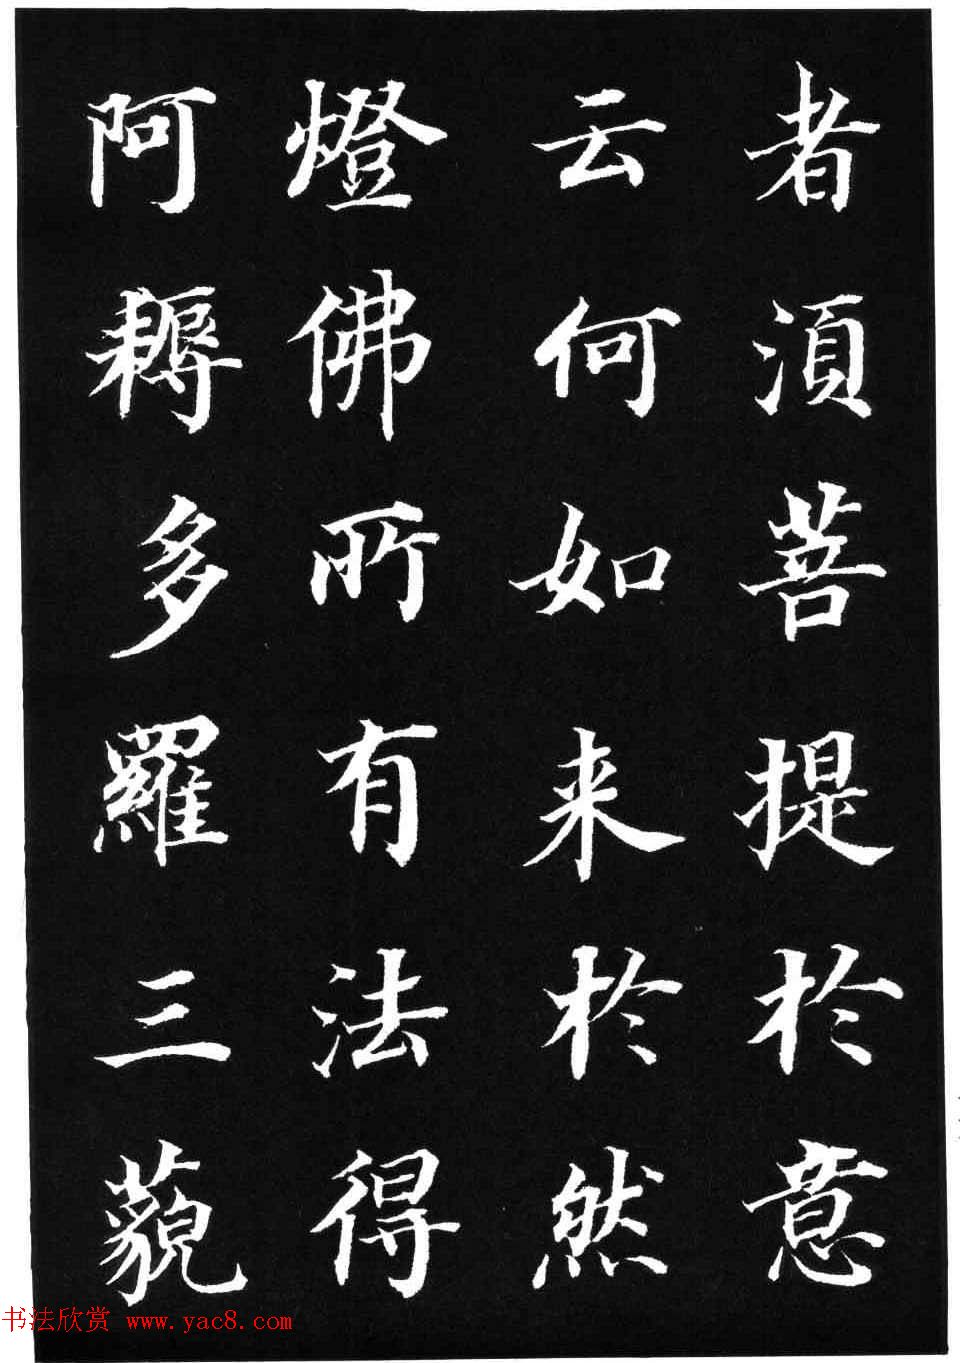 者湏菩提於意
云何如来於然
燈佛所有法得
阿耨多羅三藐
书法欣赏 www.yac8.com